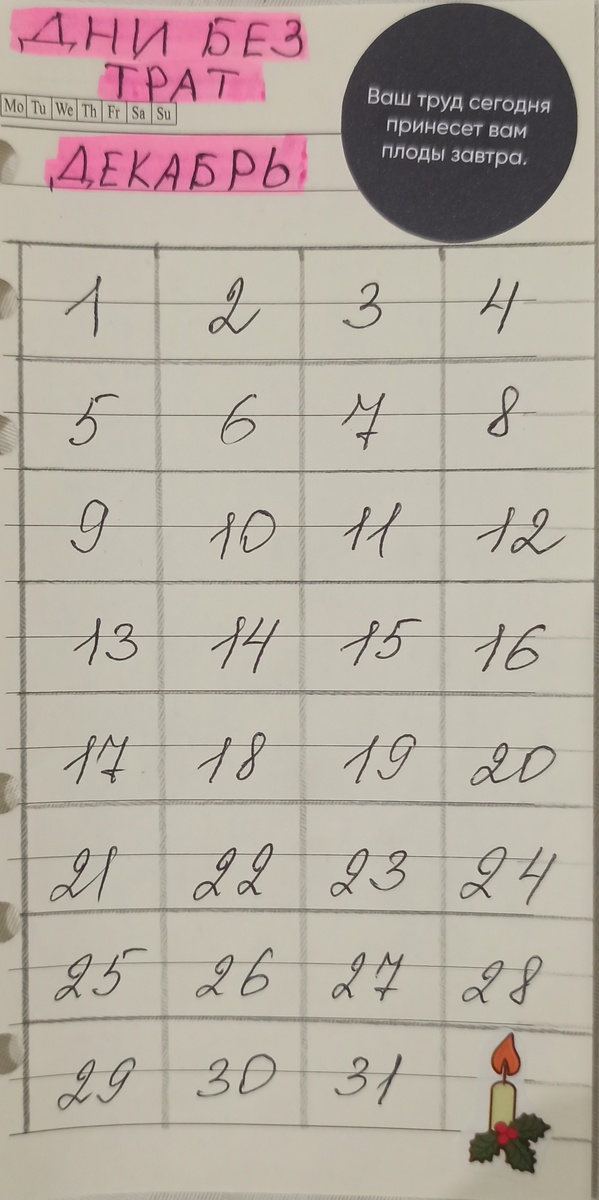 ДНИ БЕЗ
ТРАТ
Mo Tu We Th Fr Sa Su
ДЕКАБРЬ
Ваш труд сегодня
принесет вам
плоды завтра.
1 2 3 4
5 6 7 8
9 10 11 12
13 14 15 16
17 18 19 20
21 22 23 24
25 26 27 28
29 30 31